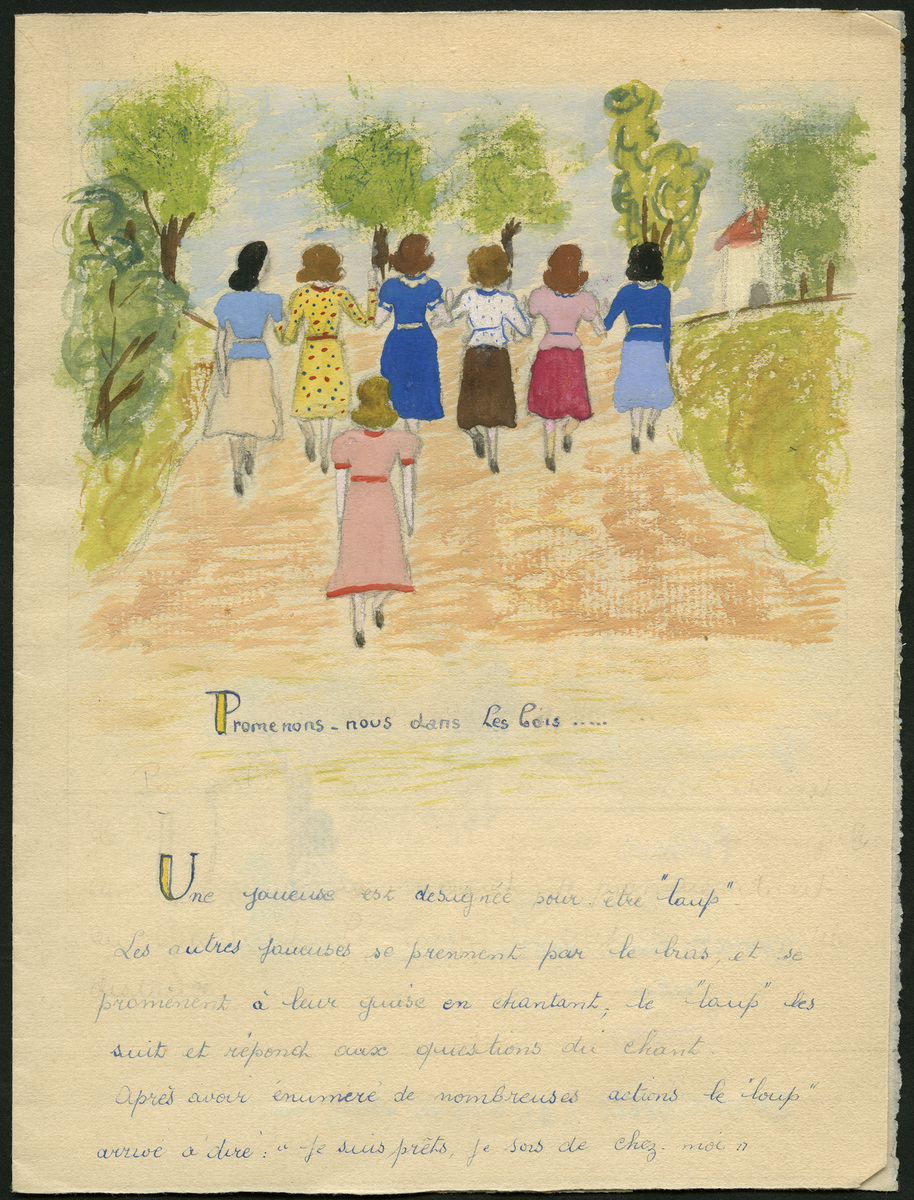 Promenons-nous dans les bois .....
Une joueuse est designée pour être "loup".
Les autres joueuses se prennent par le bras, et se
promènent à leur guise en chantant; le "loup" les
suit et répond aux questions du chant.
Après avoir énuméré de nombreuses actions le "loup"
arrive à dire: "Je suis prêts, je sors de chez-moi"